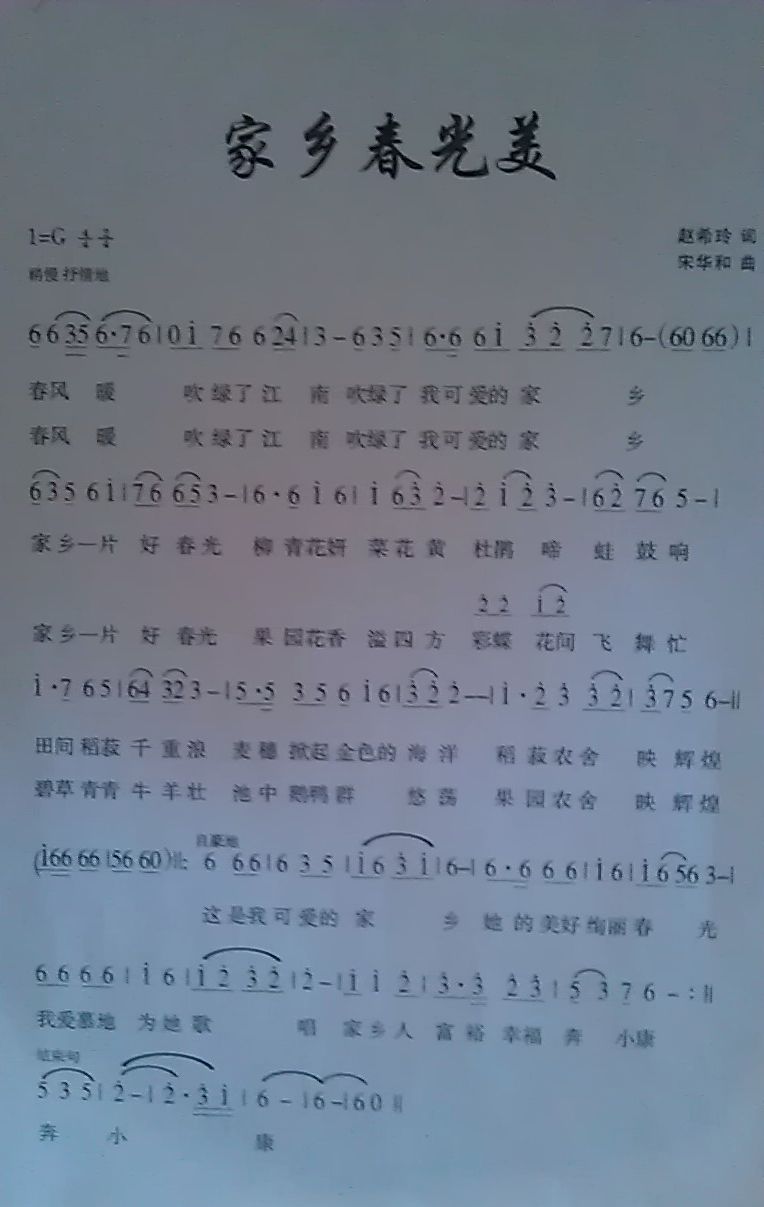 家乡春光美
1=G 4/4 2/4
赵希玲 词
稍慢 抒情地
宋华和 曲
6 6 35 6·76 | 0 1̇ 76 6 24 | 3 – 6 3 5 | 6·6 6 1̇ 3̇ 2̇ 2̇ 7 | 6 – (60 66) |
春风 暖 吹绿了江 南 吹绿了 我可爱的 家 乡
春风 暖 吹绿了江 南 吹绿了 我可爱的 家 乡
6 3 5 6 1̇ | 76 653 – | 6·6 1̇ 6 | 1̇ 63̇ 2̇ – | 2̇ 1̇ 2̇ 3̇ – | 62̇ 76 5 – |
家乡一片 好 春光 柳 青花妍 菜花 黄 杜鹃 啼 蛙 鼓 响
2̇ 2̇ 1̇ 2̇
家乡一片 好 春光 果 园花香 溢四 方 彩蝶 花间 飞 舞 忙
1̇·7 6 5 | 64 323 – | 5·5 3 5 6 1̇ 6 | 3̇ 2̇ 2̇ — | 1̇·2̇ 3̇ 3̇ 2̇ | 3̇ 7 5 6 – ||
田间 稻菽 千 重浪 麦穗 掀起 金色的 海 洋 稻 菽农舍 映 辉煌
碧草 青青 牛 羊壮 池中 鹅鸭群 悠 荡 果 园农舍 映 辉煌
自豪地
(1̇66 66 | 56 60) ||: 6 6 6 | 6 3 5 | 1̇ 6 3̇ 1̇ | 6 – | 6·6 6 6 | 1̇ 6 | 1̇ 6 56 3 – |
这是我可爱的 家 乡 她 的美好绚丽春 光
6 6 6 6 | 1̇ 6 | 1̇ 2̇ 3̇ 2̇ | 2̇ – | 1̇ 1̇ 2̇ | 3̇·3̇ 2̇ 3̇ | 5̇ 3̇ 7 6 – :||
我爱慕地 为她歌 唱 家乡人 富裕 幸福 奔 小康
结束句
5̇ 3̇ 5̇ | 2̇ – | 2̇·3̇ 1̇ | 6 – | 6 – | 6 0 ||
奔 小 康